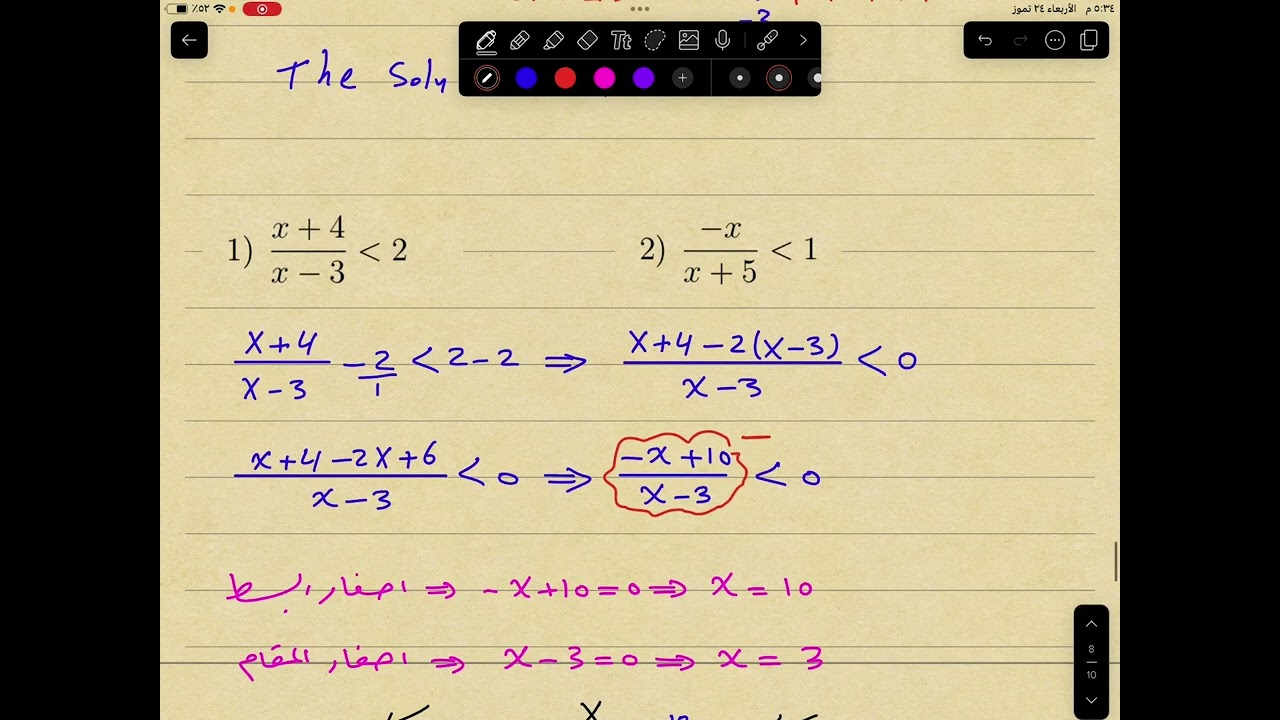 ٪٥٢
٥:٣٤ م الأربعاء ٢٤ تموز
Tt
The Solu
1) \frac{x+4}{x-3} < 2
2) \frac{-x}{x+5} < 1
\frac{x+4}{x-3} - \frac{2}{1} < 2-2 ⇒ \frac{x+4-2(x-3)}{x-3} < 0
\frac{x+4-2x+6}{x-3} < 0 ⇒ \frac{-x+10}{x-3} < 0
اصفار البسط ⇒ -x+10=0 ⇒ x=10
اصفار المقام ⇒ x-3=0 ⇒ x=3
8
10